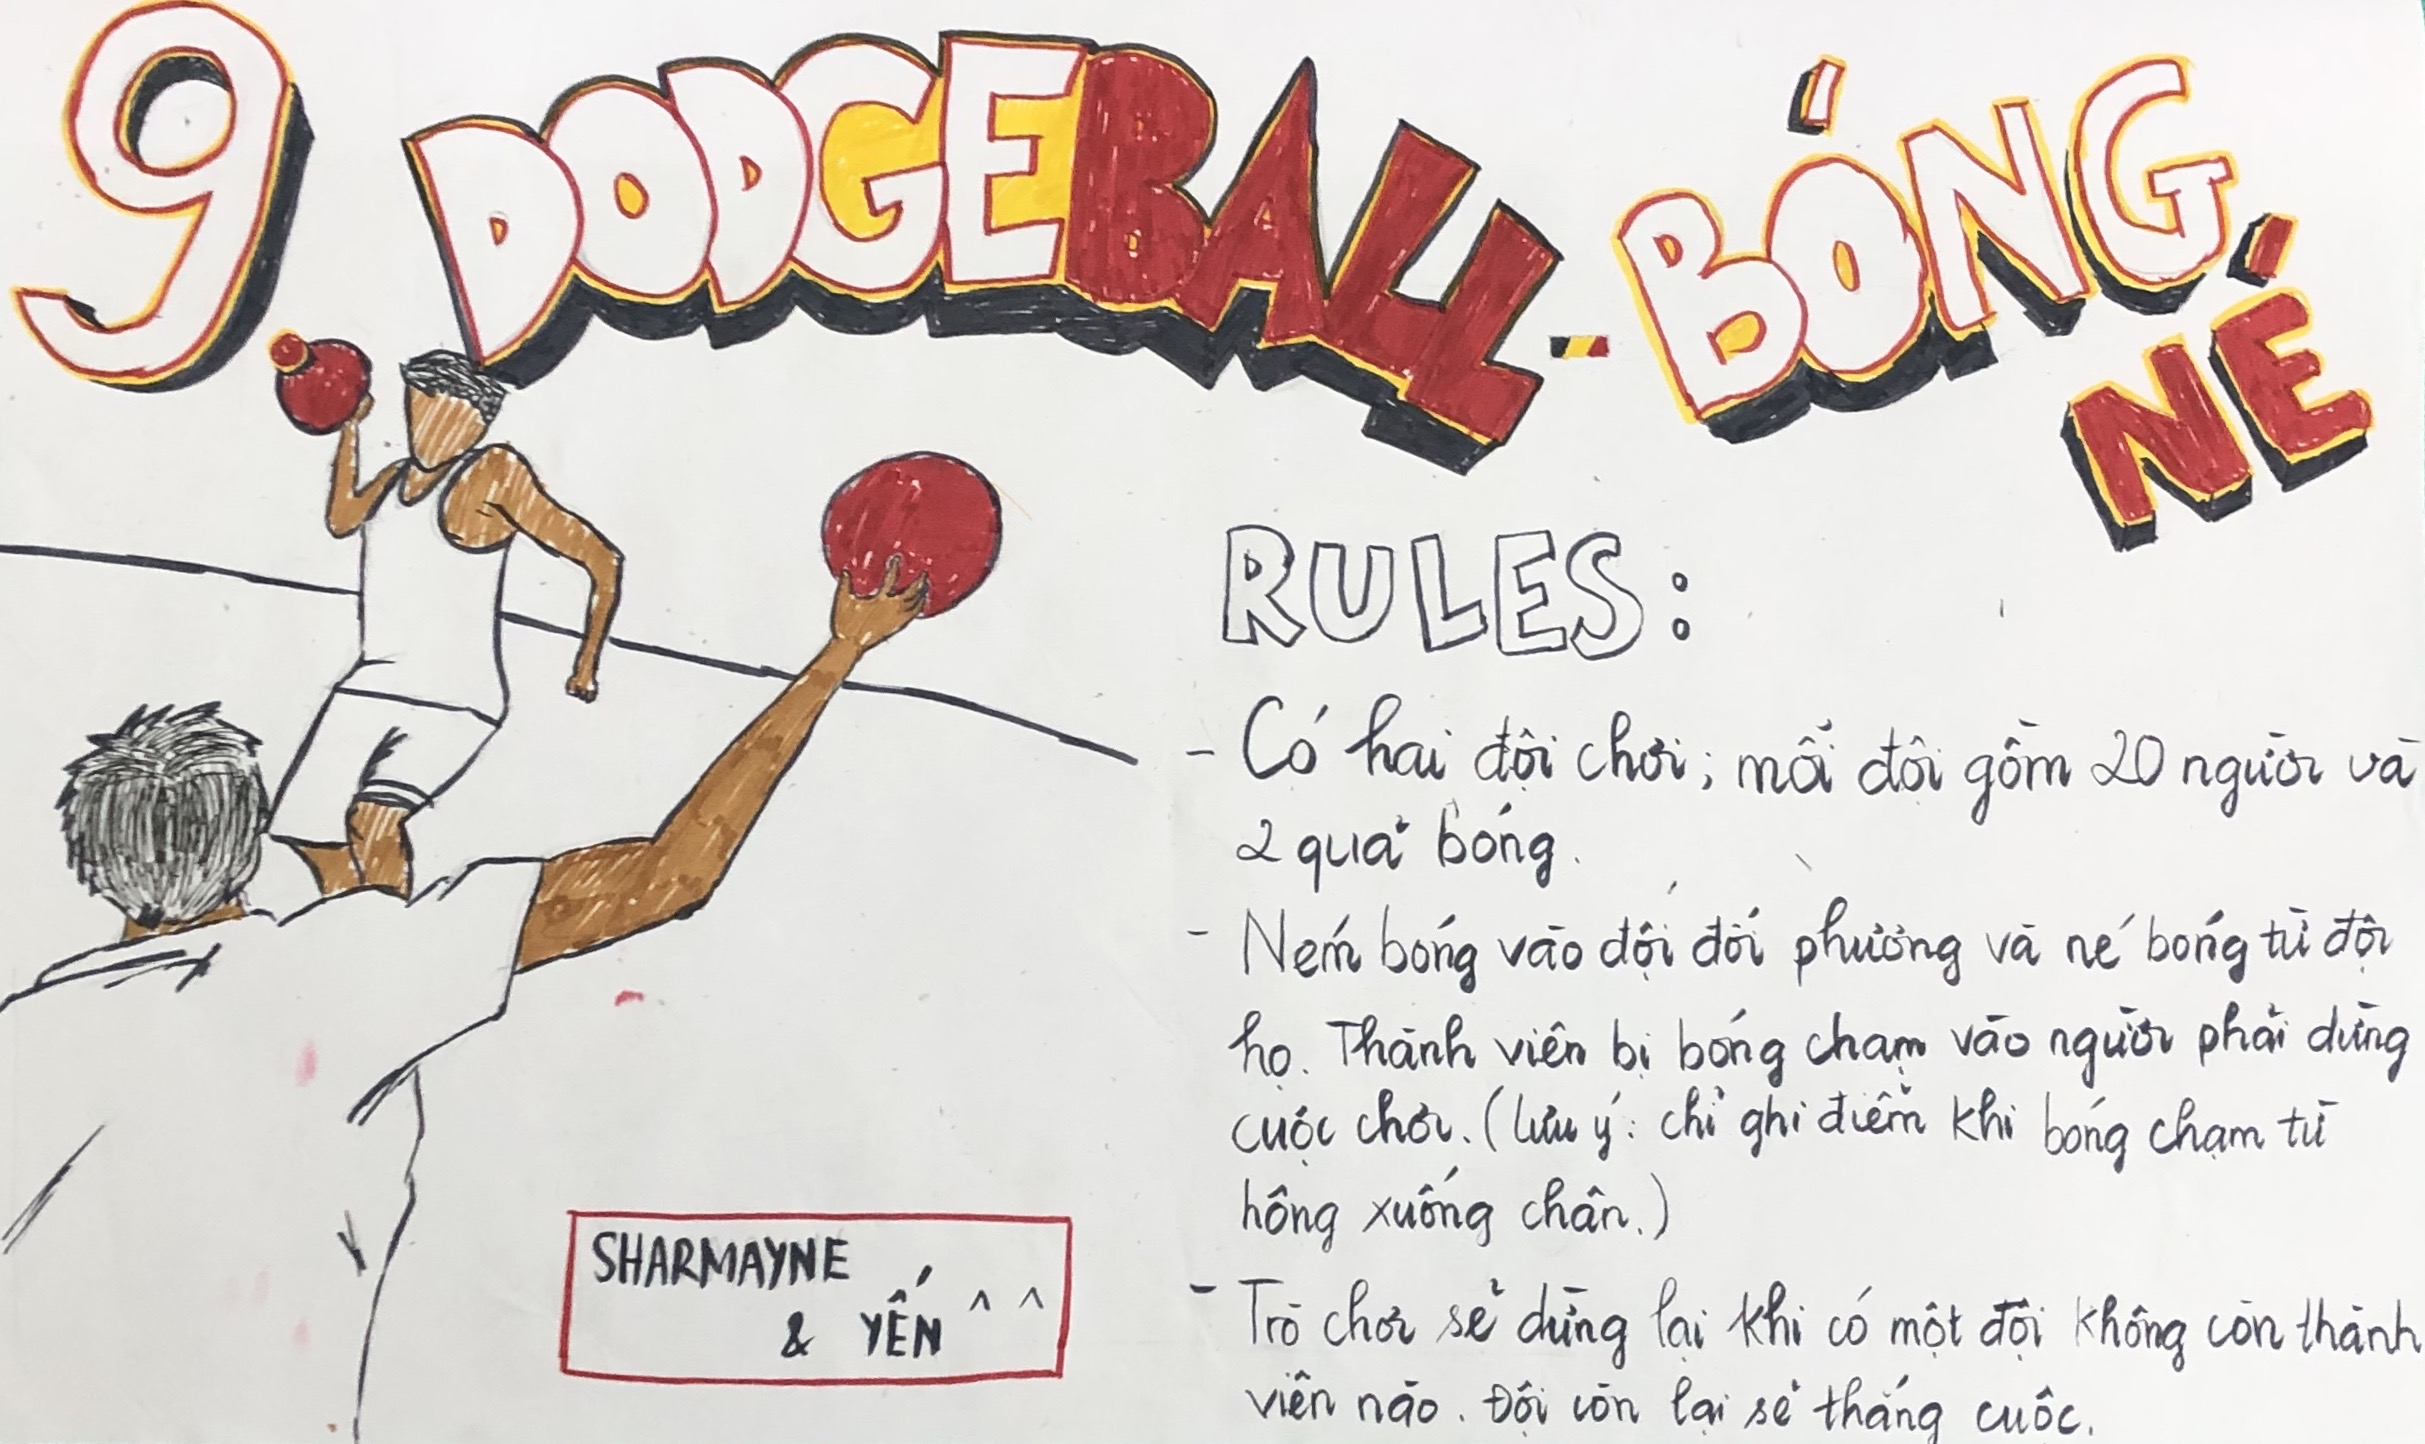 9. DODGEBALL - BÓNG NÉ
RULES:
- Có hai đội chơi; mỗi đội gồm 20 người và
2 quả bóng.
- Ném bóng vào đội đối phương và né bóng từ đội
họ. Thành viên bị bóng chạm vào người phải dừng
cuộc chơi. (lưu ý: chỉ ghi điểm khi bóng chạm từ
hông xuống chân.)
- Trò chơi sẽ dừng lại khi có một đội không còn thành
viên nào. Đội còn lại sẽ thắng cuộc.
SHARMAYNE
& YẾN ^ ^